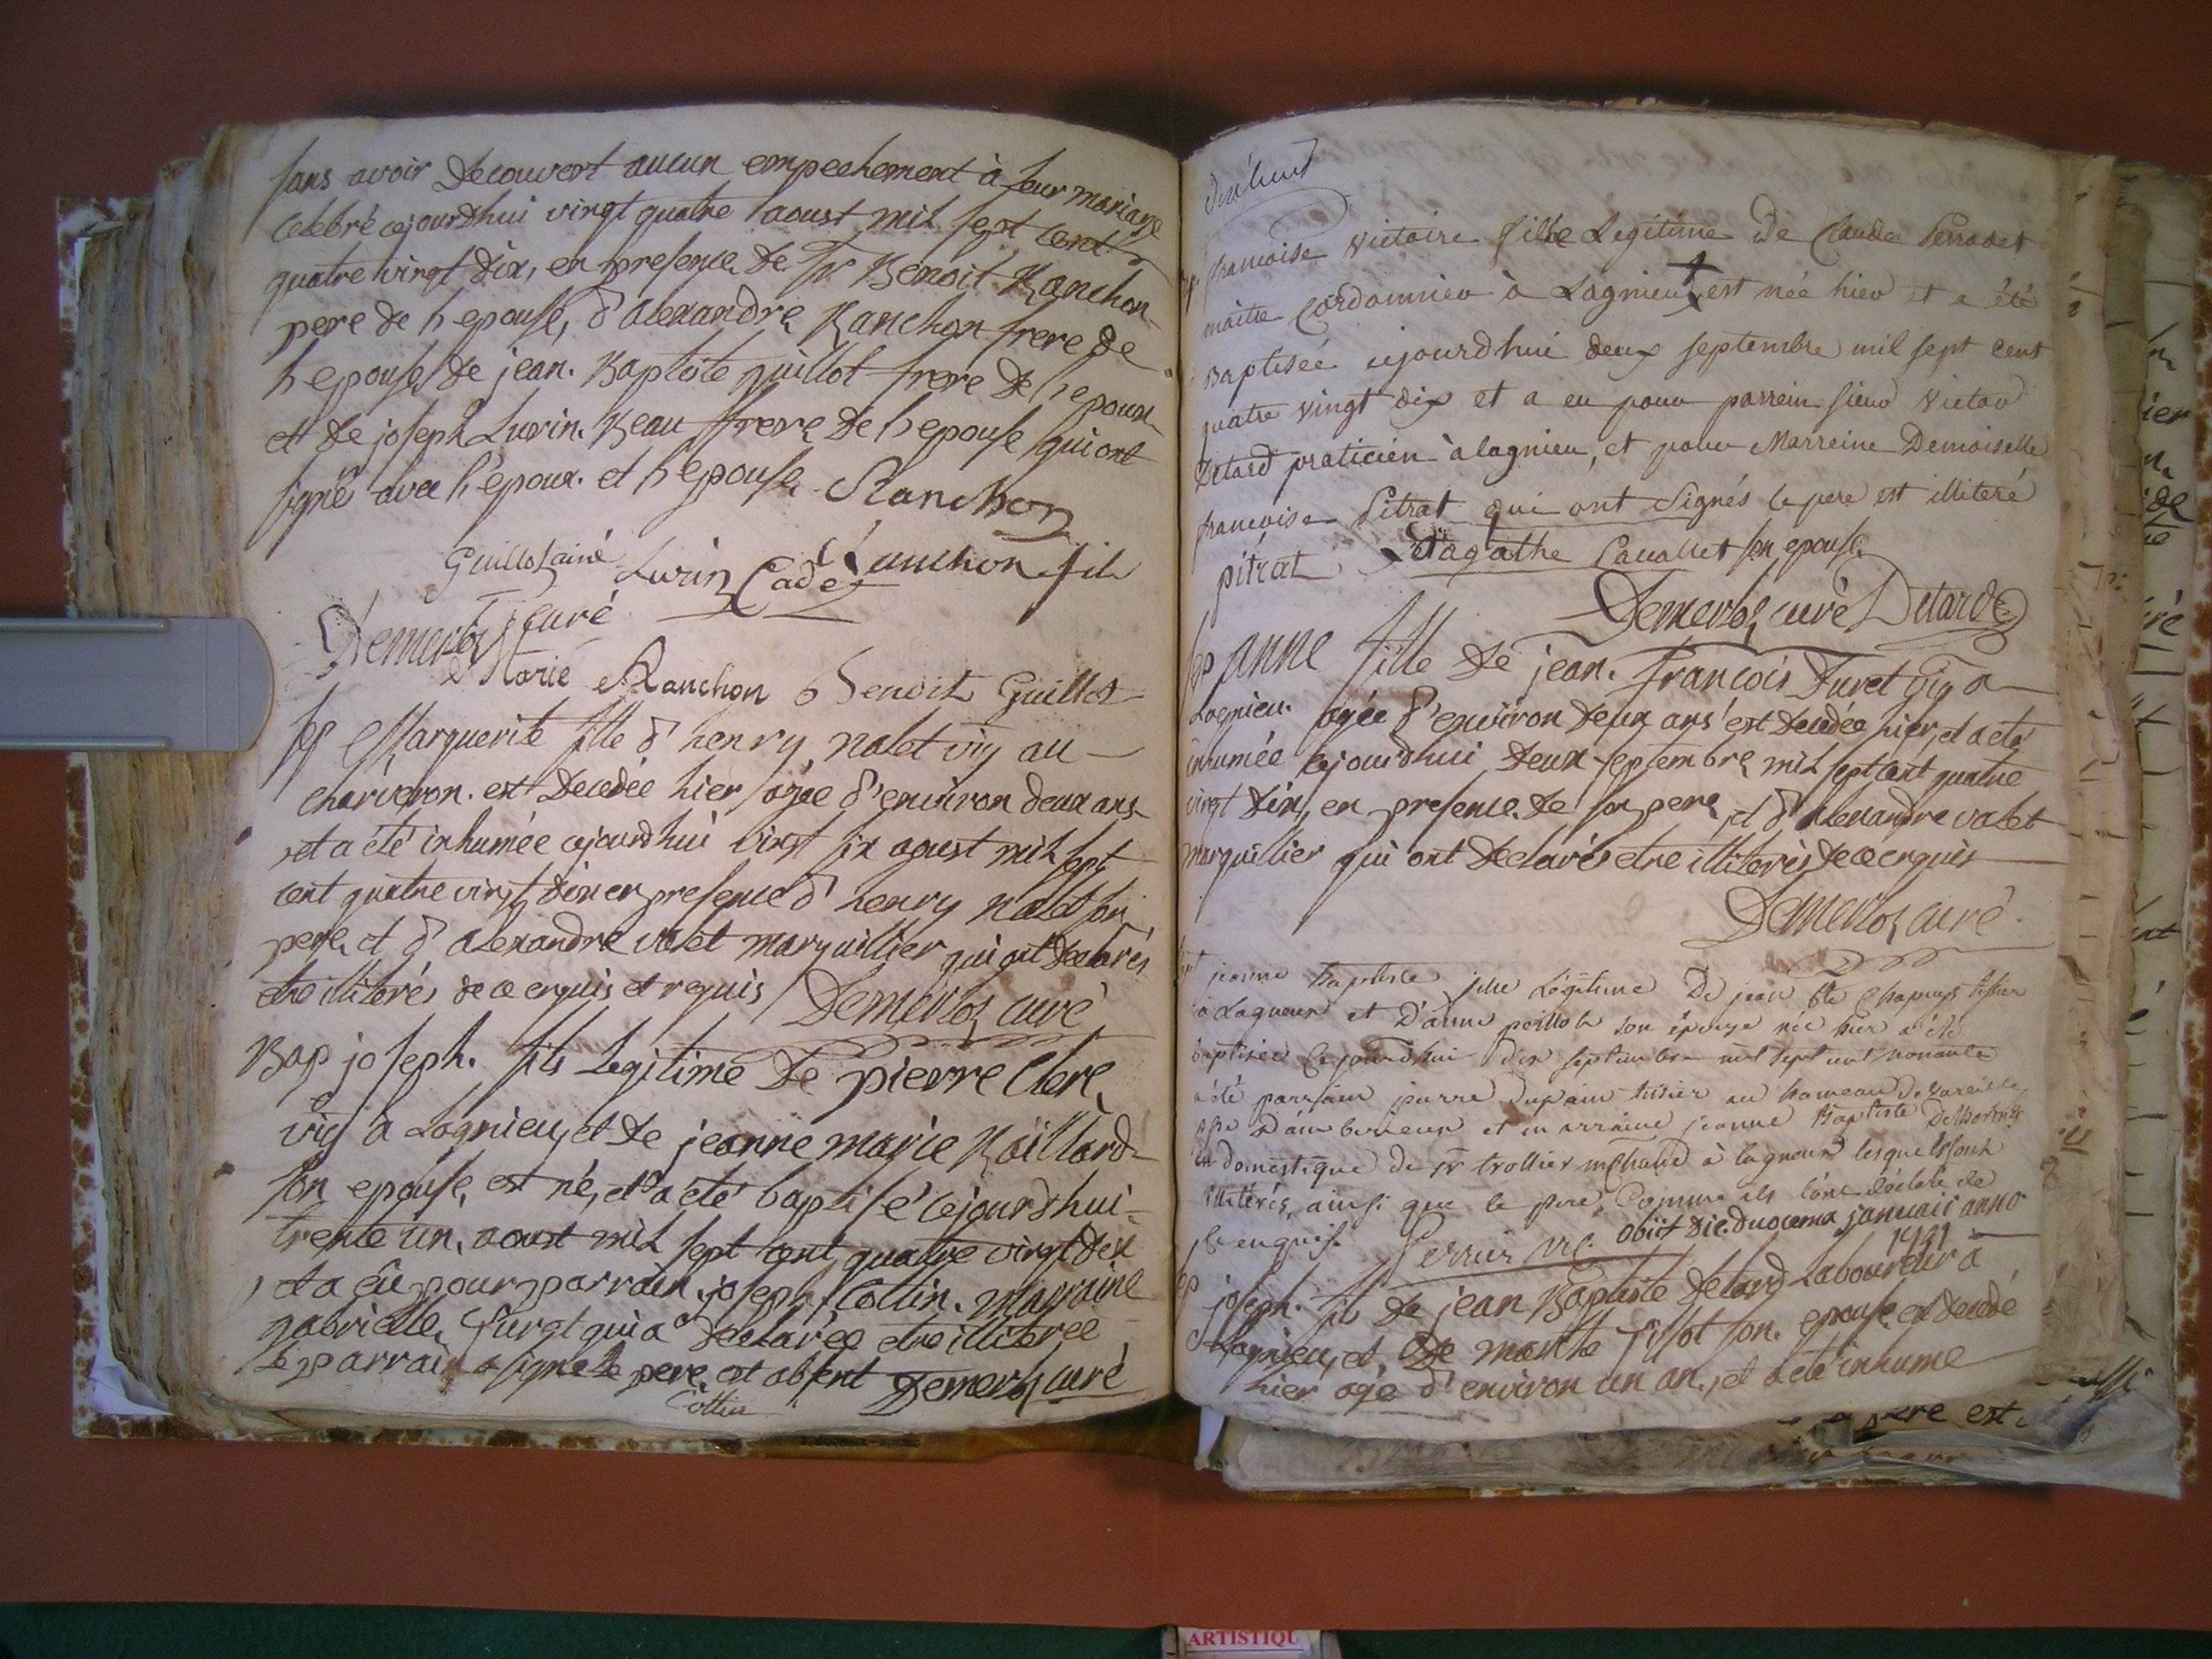 sans avoir decouvert aucun empechement à leur mariage
celebré cejourdhui vingt quatre aoust mil sept cent
quatre vingt dix, en presence de Sr Benoit Ranchon
pere de l'epouse, d'alexandre Ranchon frere de
l'epouse, de jean Baptiste guillot frere de l'epoux
et de joseph Lurin Beau frere de l'epouse qui ont
signé avec l'epoux et l'epouse Ranchon
Guillot ainé Lurin Cadet Ranchon fils
Demerloz curé
Marie Ranchon Benoit Guillot
sep Marguerite fille d'henry nalet vig au
charveron est decedée hier agée d'environ deux ans
et a été inhumée cejourdhui vingt six aoust mil sept
cent quatre vingt dix en presence d'henry nalet son
pere et d'alexandre valet marguillier qui ont declarés
etre illiterés de ce enquis et requis Demerloz curé
Bap joseph fils Legitime de pierre Clerc
vig à Lagnieu, et de jeanne marie Raillard
son epouse, est né, et a été baptisé cejourdhui
trente un aoust mil sept cent quatre vingt dix
et a eû pour parrain joseph Cottin, marraine
gabrielle furet qui a declarée etre illiteree
le parrain a signé le pere est absent Demerloz curé
Cottin
dixhuit
francoise Victoire fille Legitime De Claude Perrodet
maitre Cordonnier à Lagnieu + est née hier et a été
Baptisée cejourdhui deux septembre mil sept cent
quatre vingt dix et a eu pour parrein sieur Victor
Detard praticien à lagnieu, et pour Marreine Demoiselle
francoise Pitrat qui ont Signés le pere est illiteré
pitrat + et d'agathe Cavallet son epouse
Demerloz curé Detard
sep anne fille de jean francois furet vig a
Lagnieu agée d'environ deux ans est decedée hier, et a eté
inhumée cejourdhui deux septembre mil sept cent quatre
vingt dix, en presence de son pere, et d'alexandre valet
marguillier qui ont declarés etre illiterés de ce enquis
Demerloz curé
jeanne Baptiste fille Légitime De jean Bte Chapuys
à Lagneux et D'anne son épouse née hier a été
baptisée Cejourdhui dix septembre mil sept cent nonante
a été parrain pierre dupain tissier au hameau de
D'amberieux et marraine jeanne Baptiste
domestique de Sr trollier mchand à lagneux lesquels sont
illitérés, ainsi que le pere, Comme ils l'ont déclaré de
ce enquis. Perrier vic. obiit die duodecima januarii anno
1791
joseph fils de jean Baptiste Detard Laboureur à
Lagnieu, et de marthe Tissot son epouse est decedé
hier agé d'environ un an, et a eté inhumé
ARTISTIQU